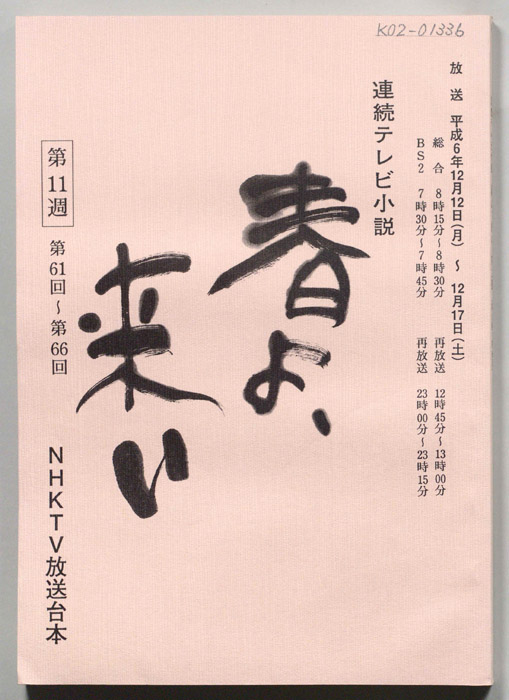 K02-01336
放送 平成6年12月12日(月) ~ 12月17日(土)
総合 8時15分~8時30分 再放送 12時45分~13時00分
BS2 7時30分~7時45分 再放送 23時00分~23時15分
連続テレビ小説
春よ、
来い
第11週
第61回~第66回
NHKTV放送台本